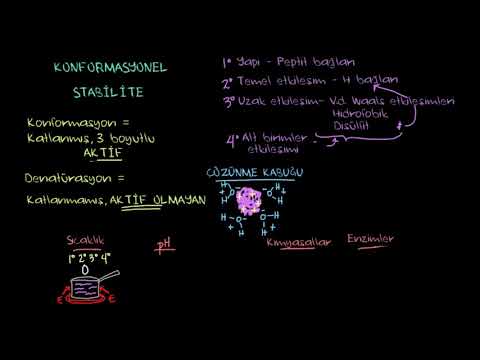 KONFORMASYONEL
STABİLİTE
Konformasyon =
Katlanmış, 3 boyutlu
AKTİF
Denatürasyon =
Katlanmamış, AKTİF OLMAYAN
1° Yapı - Peptit bağları
2° Temel etkileşim - H bağları
3° Uzak etkileşim - V.d. Waals etkileşimleri
Hidrofobik
Disülfit
4° Alt birimler
etkileşimi
ÇÖZÜNME KABUĞU
H H H H
O O
H H
H H
O O
H H
Sıcaklık pH Kimyasallar Enzimler
1° 2° 3° 4°
E E